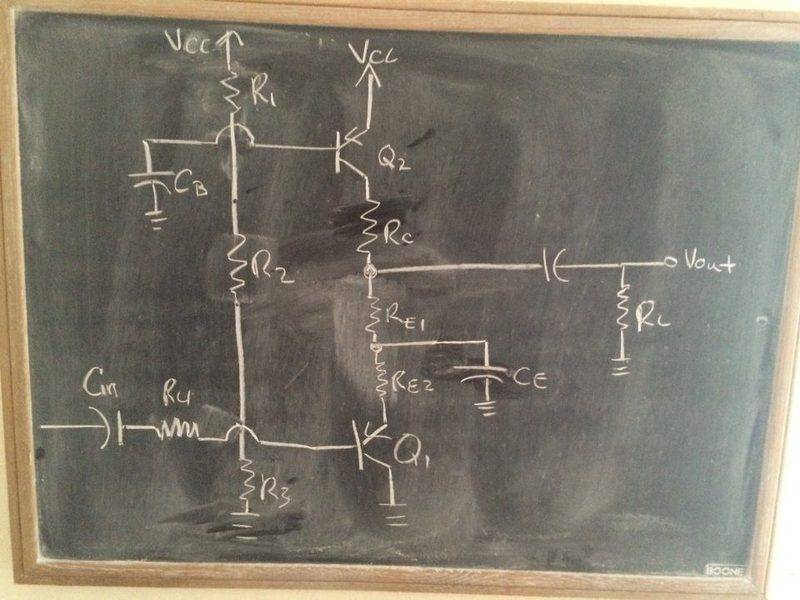 Vcc
VCC
R1
Q2
CB
RC
R2
Vout
RE1
RL
RE2
CE
Cin
R4
Q1
R3
BOONE